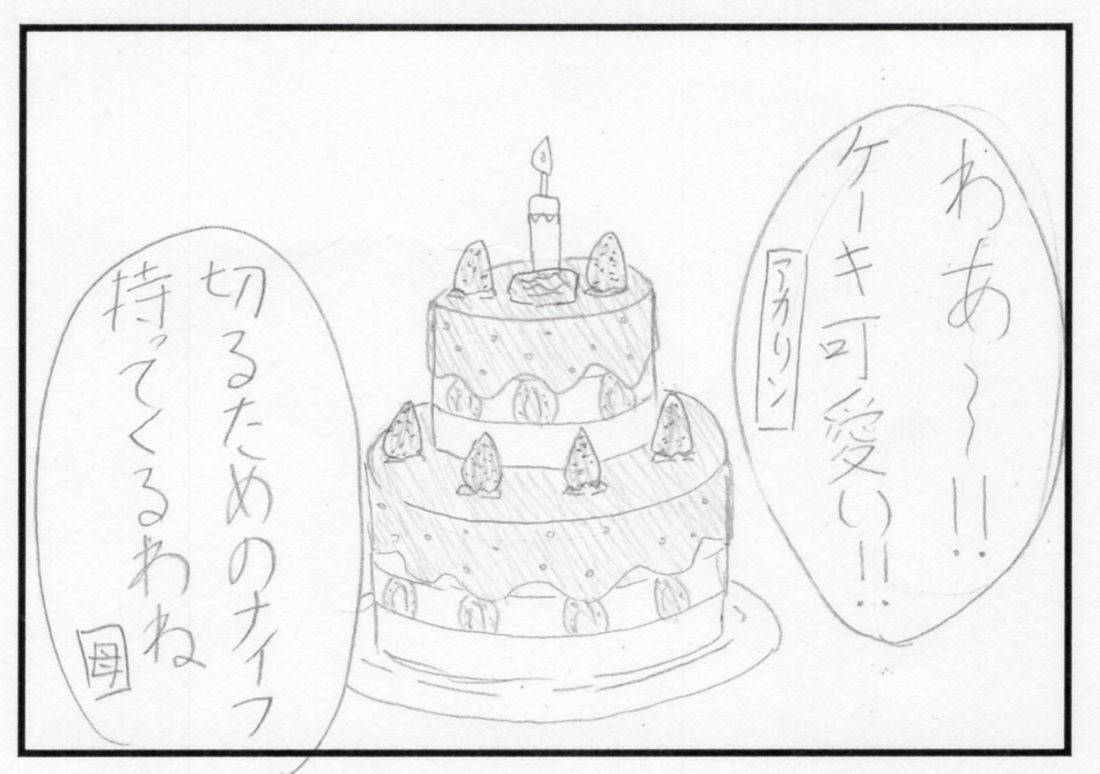 わあ〜!!
ケーキ可愛い!!
アカリン
切るためのナイフ
持ってくるわね
母